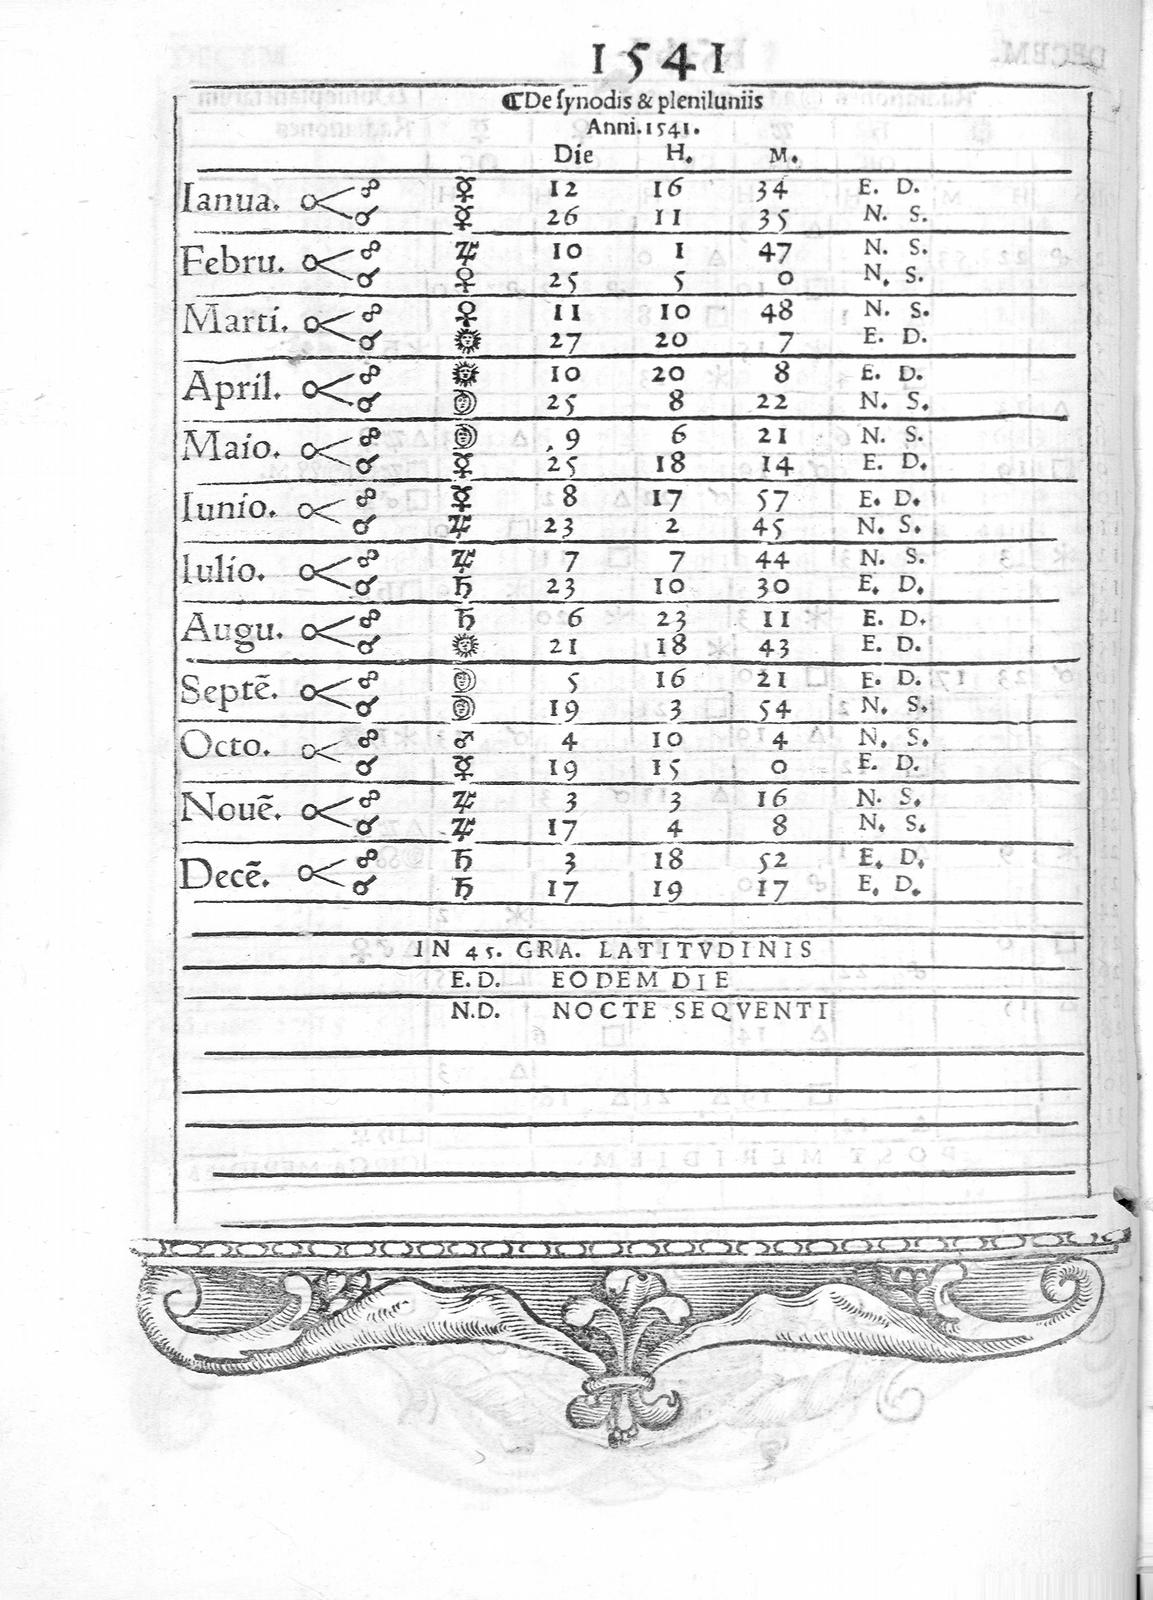 1541
¶De synodis & pleniluniis
Anni. 1541.
Die H. M.
Ianua. ☍ ☿ 12 16 34 E. D.
☌ ☿ 26 11 35 N. S.
Febru. ☍ ♃ 10 1 47 N. S.
☌ ♀ 25 5 0 N. S.
Marti. ☍ ♀ 11 10 48 N. S.
☌ ☉ 27 20 7 E. D.
April. ☍ ☉ 10 20 8 E. D.
☌ ☽ 25 8 22 N. S.
Maio. ☍ ☽ 9 6 21 N. S.
☌ ☿ 25 18 14 E. D.
Iunio. ☍ ☿ 8 17 57 E. D.
☌ ♃ 23 2 45 N. S.
Iulio. ☍ ♃ 7 7 44 N. S.
☌ ♄ 23 10 30 E. D.
Augu. ☍ ♄ 6 23 11 E. D.
☌ ☉ 21 18 43 E. D.
Septẽ. ☍ ☽ 5 16 21 E. D.
☌ ☽ 19 3 54 N. S.
Octo. ☍ ♂ 4 10 4 N. S.
☌ ☿ 19 15 0 E. D.
Nouẽ. ☍ ♃ 3 3 16 N. S.
☌ ♃ 17 4 8 N. S.
Decẽ. ☍ ♄ 3 18 52 E. D.
☌ ♄ 17 19 17 E. D.
IN 45. GRA. LATITVDINIS
E. D. EODEM DIE
N.D. NOCTE SEQVENTI